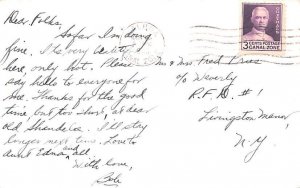 Dear Folks,
So far I'm doing
fine. I'm very
here, only hot. Please
say hello to everyone for
me. Thanks for the good
time but too short, at dear
old Shandelee. I'll stay
longer next time. Love to
Aunt Edna and all.
With love,
Bob
GOETHALS
3 CENTS POSTAGE
CANAL ZONE
Mr & Mrs Fred
c/o Weverly
R.F.D. #1
Livingston Manor
N-Y